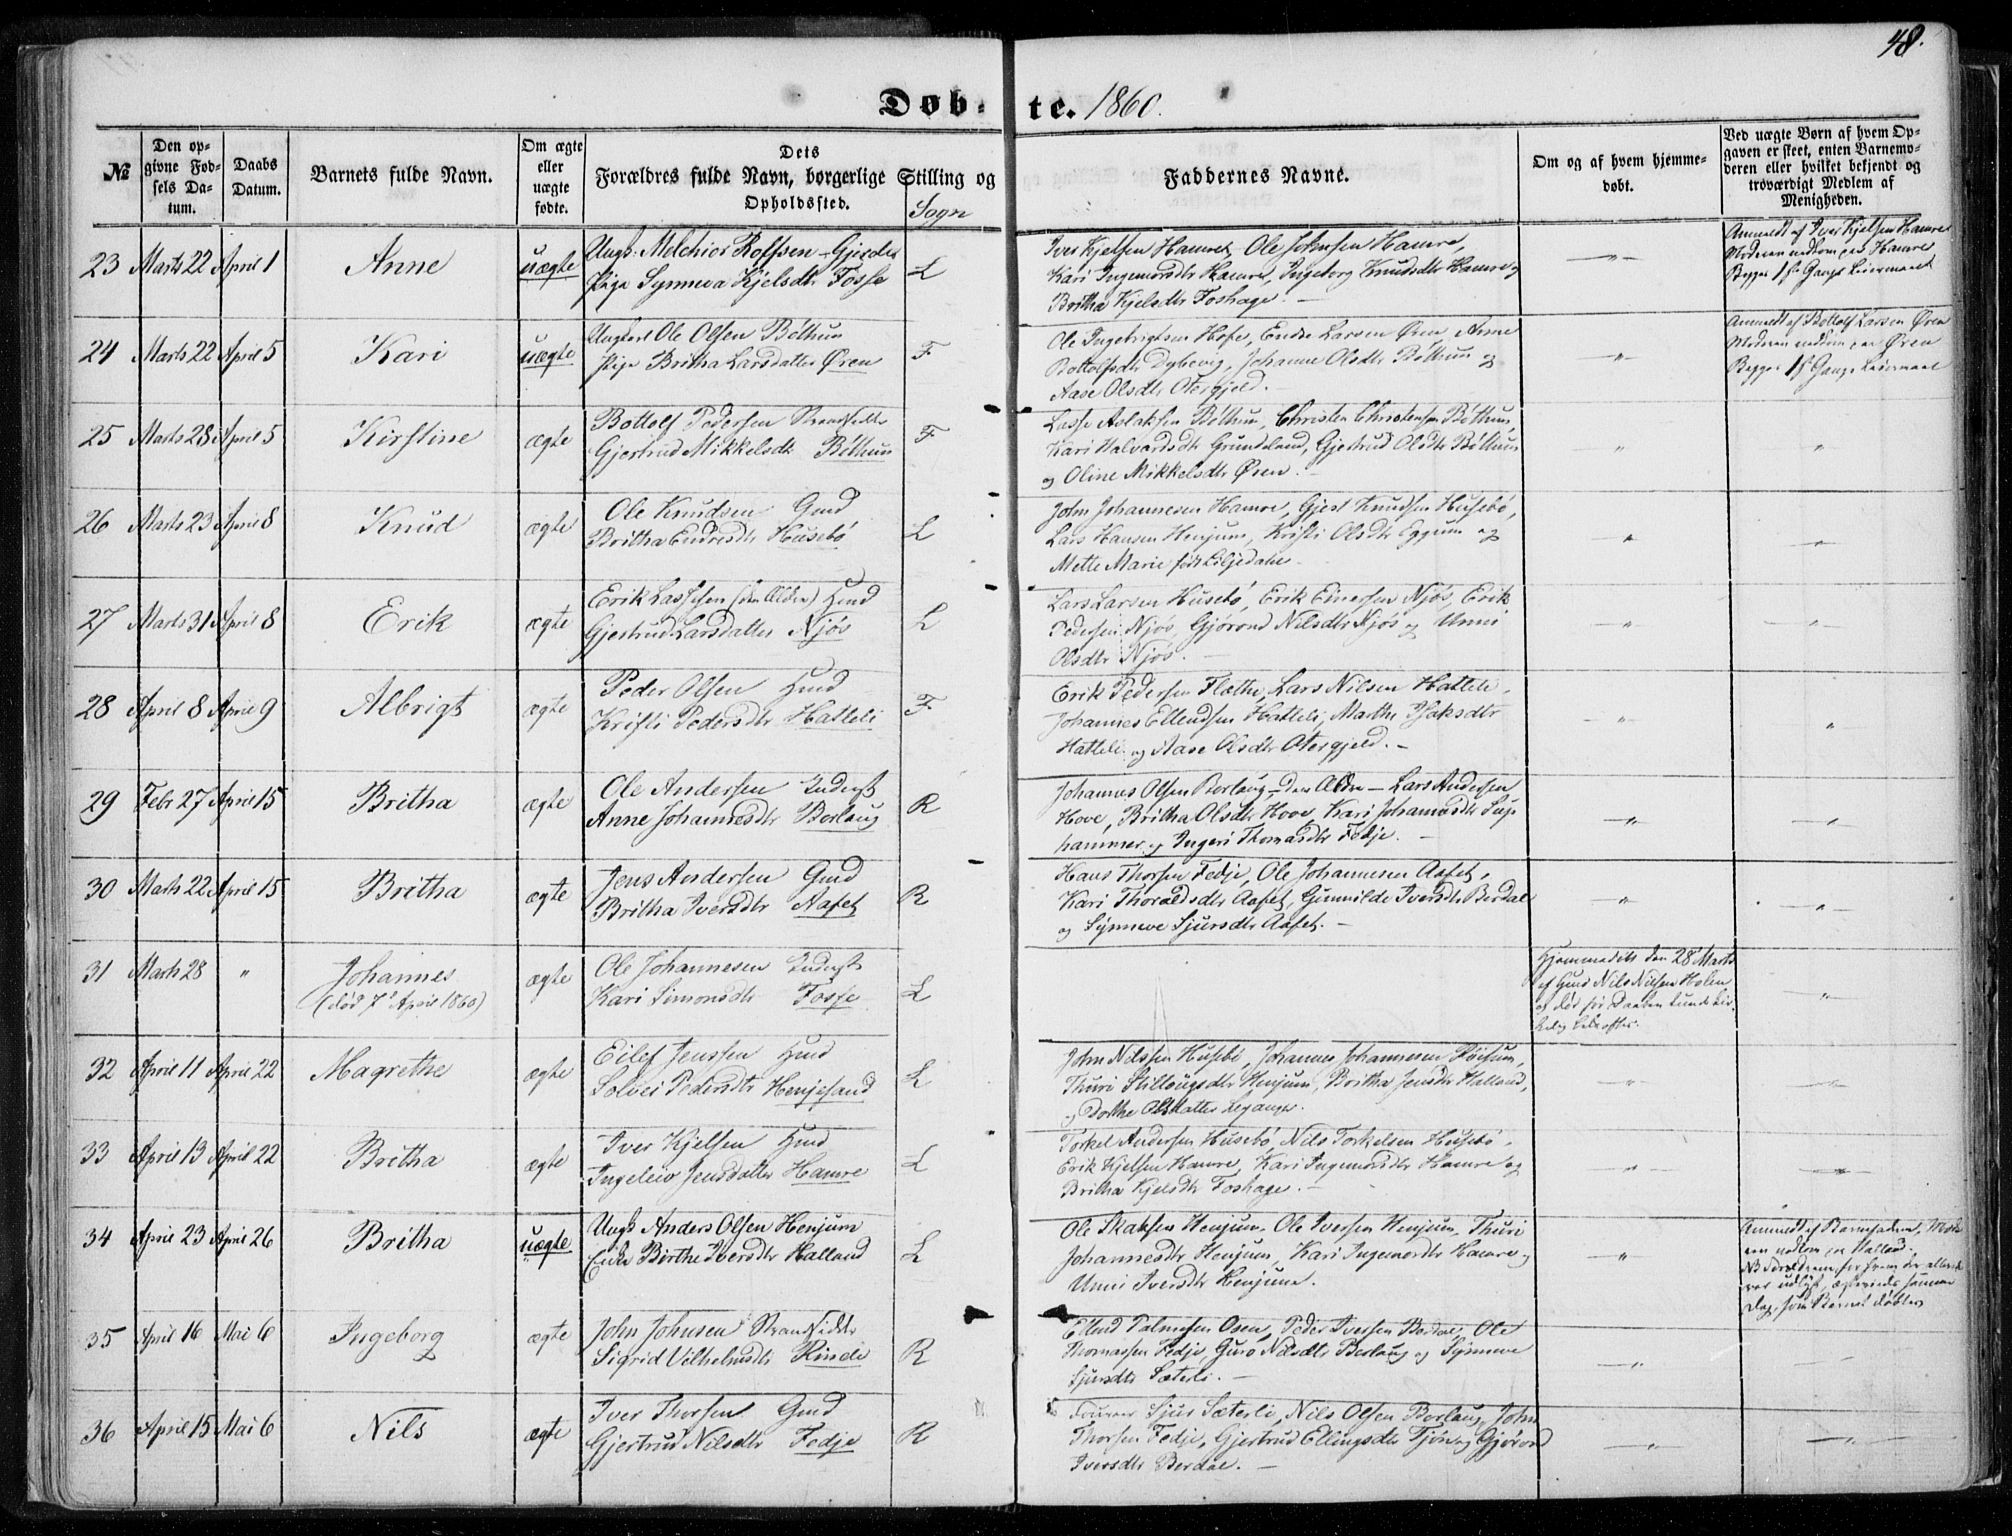 48.
Døb- te. 1860.
№
Den op-
givne Fød-
sels Da-
tum.
Daabs
Datum.
Barnets fulde Navn.
Om ægte
eller
uægte
fødte.
Dets
Forældres fulde Navn, borgerlige Stilling og
Opholdssted.
Sogn
Faddernes Navne.
Om og af hvem hjemme-
døbt.
Ved uægte Børn af hvem Op-
gaven er skeet, enten Barnemo-
deren eller hvilket bekjendt og
troværdigt Medlem af
Menigheden.
23 Marts 22 April 1 Anne uægte
Ungk. Melchior Rolfsen Gjerde
Pige Synneva Kjelsdtr Fosse L
Iver Kjelsen Hamre, Ole Johnsen Hamre,
Kari Ingemorsdtr Hamre, Ingeborg Knudsdtr Hamre og
Britha Kjelsdtr Foshage. —
—"—
Anmeldt af Iver Kjelsen Hamre
Moderen hjem paa Hamre
Begges 1ste Gangs Leiermaal
24 Marts 22 April 5 Kari uægte
Ungkarl Ole Olsen Bøthun
Pige Britha Larsdatter Øren F
Ole Ingebrigtsen Hofe, Endre Larsen Øren, Anne
Bottolfsdtr Dybevig, Johanne Olsdtr Bøthun og
Aase Olsdtr Otergjeld. —
—"—
Anmeldt af Bottolf Larsen Øren
Moderen hjem paa Øren
Begges 1ste Gangs Leiermaal
25 Marts 28 April 5 Kirstine ægte
Bottolf Pedersen Strandsidder
Gjertrud Mikkelsdtr Bøthun F
Lasse Aslaksen Bøthun, Christen Christensen Bøthun,
Kari Halvardsdtr Grundeland, Gjertrud Olsdtr Bøthun
og Oline Mikkelsdtr Øren. —
—"— "
26 Marts 23 April 8 Knud ægte
Ole Knudsen Gmd
Britha Endresdtr Husebø L
John Johannesen Hamre, Gjest Knudsen Husebø,
Lars Hansen Henjum, Kristi Olsdtr Eggum og
Mette Marie født Liljedahl
—"— —"—
27 Marts 31 April 8 Erik ægte
Erik Lassesen (den Ældre) Hmd
Gjertrud Larsdatter Njøs L
Lars Larsen Husebø, Erik Einersen Njøs, Erik
Pedersen Njøs, Gjørond Nilsdtr Njøs og Unni
Olsdtr Njøs. —
—"— —"—
28 April 8 April 9 Albrigt ægte
Peder Olsen Hmd
Kristi Pedersdtr Hatleli F
Erik Pedersen Flæthe, Lars Nilsen Hatleli,
Johannes Ellendsen Hatleli, Marthe Isaksdtr
Hatleli og Aase Olsdtr Otergjeld. —
—"— "
29 Febr 27 April 15 Britha ægte
Ole Andersen Inderst
Anne Johannesdtr Borlaug R
Johannes Olsen Borlaug, den Ældre — Lars Andersen
Hove, Britha Olsdtr Hove, Kari Johannesdtr Sup
hammer og Ingeri Thomasdtr Fedje. —
—"— —"—
30 Marts 22 April 15 Britha ægte
Jens Andersen Gmd
Britha Iversdtr Aafet R
Hans Thorsen Fedje, Ole Johannesen Aafet,
Kari Thoraldsdtr Aafet, Gunnilde Iversdtr Berdal
og Synneve Sjursdtr Aafet. —
—"— —"—
31 Marts 28 " Johannes
(død 7de April 1860)
ægte
Ole Johannesen Inderst
Kari Simonsdtr Fosse L
Hjemmedøbt den 28 Marts
af Gmd Nils Nilsen Holen
og død før Daaben kunde kir-
kelig bekræftes.
—"—
32 April 11 April 22 Magrethe ægte
Eilef Jenssen Hmd
Solvei Pedersdtr Henjesand L
John Nilssen Husebø, Johannes Johannesen
Thuri Stillougsdtr Henjum, Britha Jensdtr Halland,
og Dorthe Olsdatter Leganger.
—"— —"—
33 April 13 April 22 Britha ægte
Iver Kjelsen Hmd
Ingeleiv Jensdatter Hamre L
Torkel Andersen Husebø, Nils Torkelsen Husebø,
Erik Kjelsen Hamre, Kari Ingemorsdtr Hamre og
Britha Kjelsdtr Foshage. —
—"— —"—
34 April 23 April 26 Britha uægte
Ungk. Anders Olsen Henjum
Enke Birthe Iversdtr Halland L
Ole Skaksen Henjum, Ole Iversen Henjum, Thuri
Johannesdtr Henjum, Kari Ingemorsdtr Hamre og
Unni Iversdtr Henjum.
"
Anmeldt af Barnefaderen, Mode-
ren hjem paa Halland.
NB Forældrene, for hvem der allerede
var udlyst, ægteviedes samme
Dag, som Barnet døbtes
35 April 16 Mai 6 Ingeborg ægte
John Johnsen Strandsidder
Sigrid Vilhelmsdtr Rinde R
Ellend Palmesen Osen, Peder Iversen Berdal, Ole
Thomassen Fedje, Guro Nilsdtr Borlaug og Synneve
Sjursdtr Sæterli. —
—"—
36 April 15 Mai 6 Nils ægte
Iver Thorsen Gmd
Gjertrud Nilsdtr Fedje R
Sjur Sæterli, Nils Olsen Borlaug, John
Thorsen Fedje, Gjertrud Ellingsdtr Tjøn og Gjørond
Iversdtr Berdal. —
—"— —"—